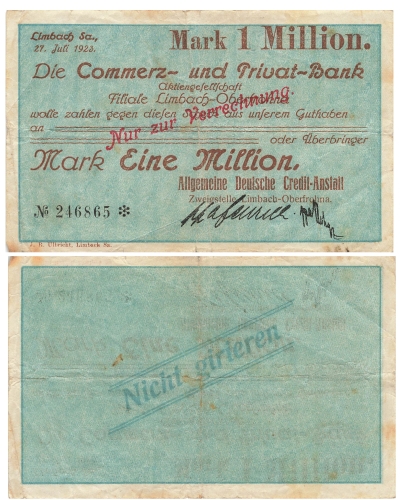 Limbach Sa.,
27. Juli 1923.
Mark 1 Million.
Die Commerz- und Privat-Bank
Aktiengesellschaft
Filiale Limbach-Oberfrohna
wolle zahlen gegen diesen aus unserem Guthaben
an
oder Überbringer
Nur zur Verrechnung.
Mark Eine Million.
Allgemeine Deutsche Credit-Anstalt
Zweigstelle Limbach-Oberfrohna.
№ 246865 ✻
J. B. Ulbricht, Limbach Sa.
Nicht girieren